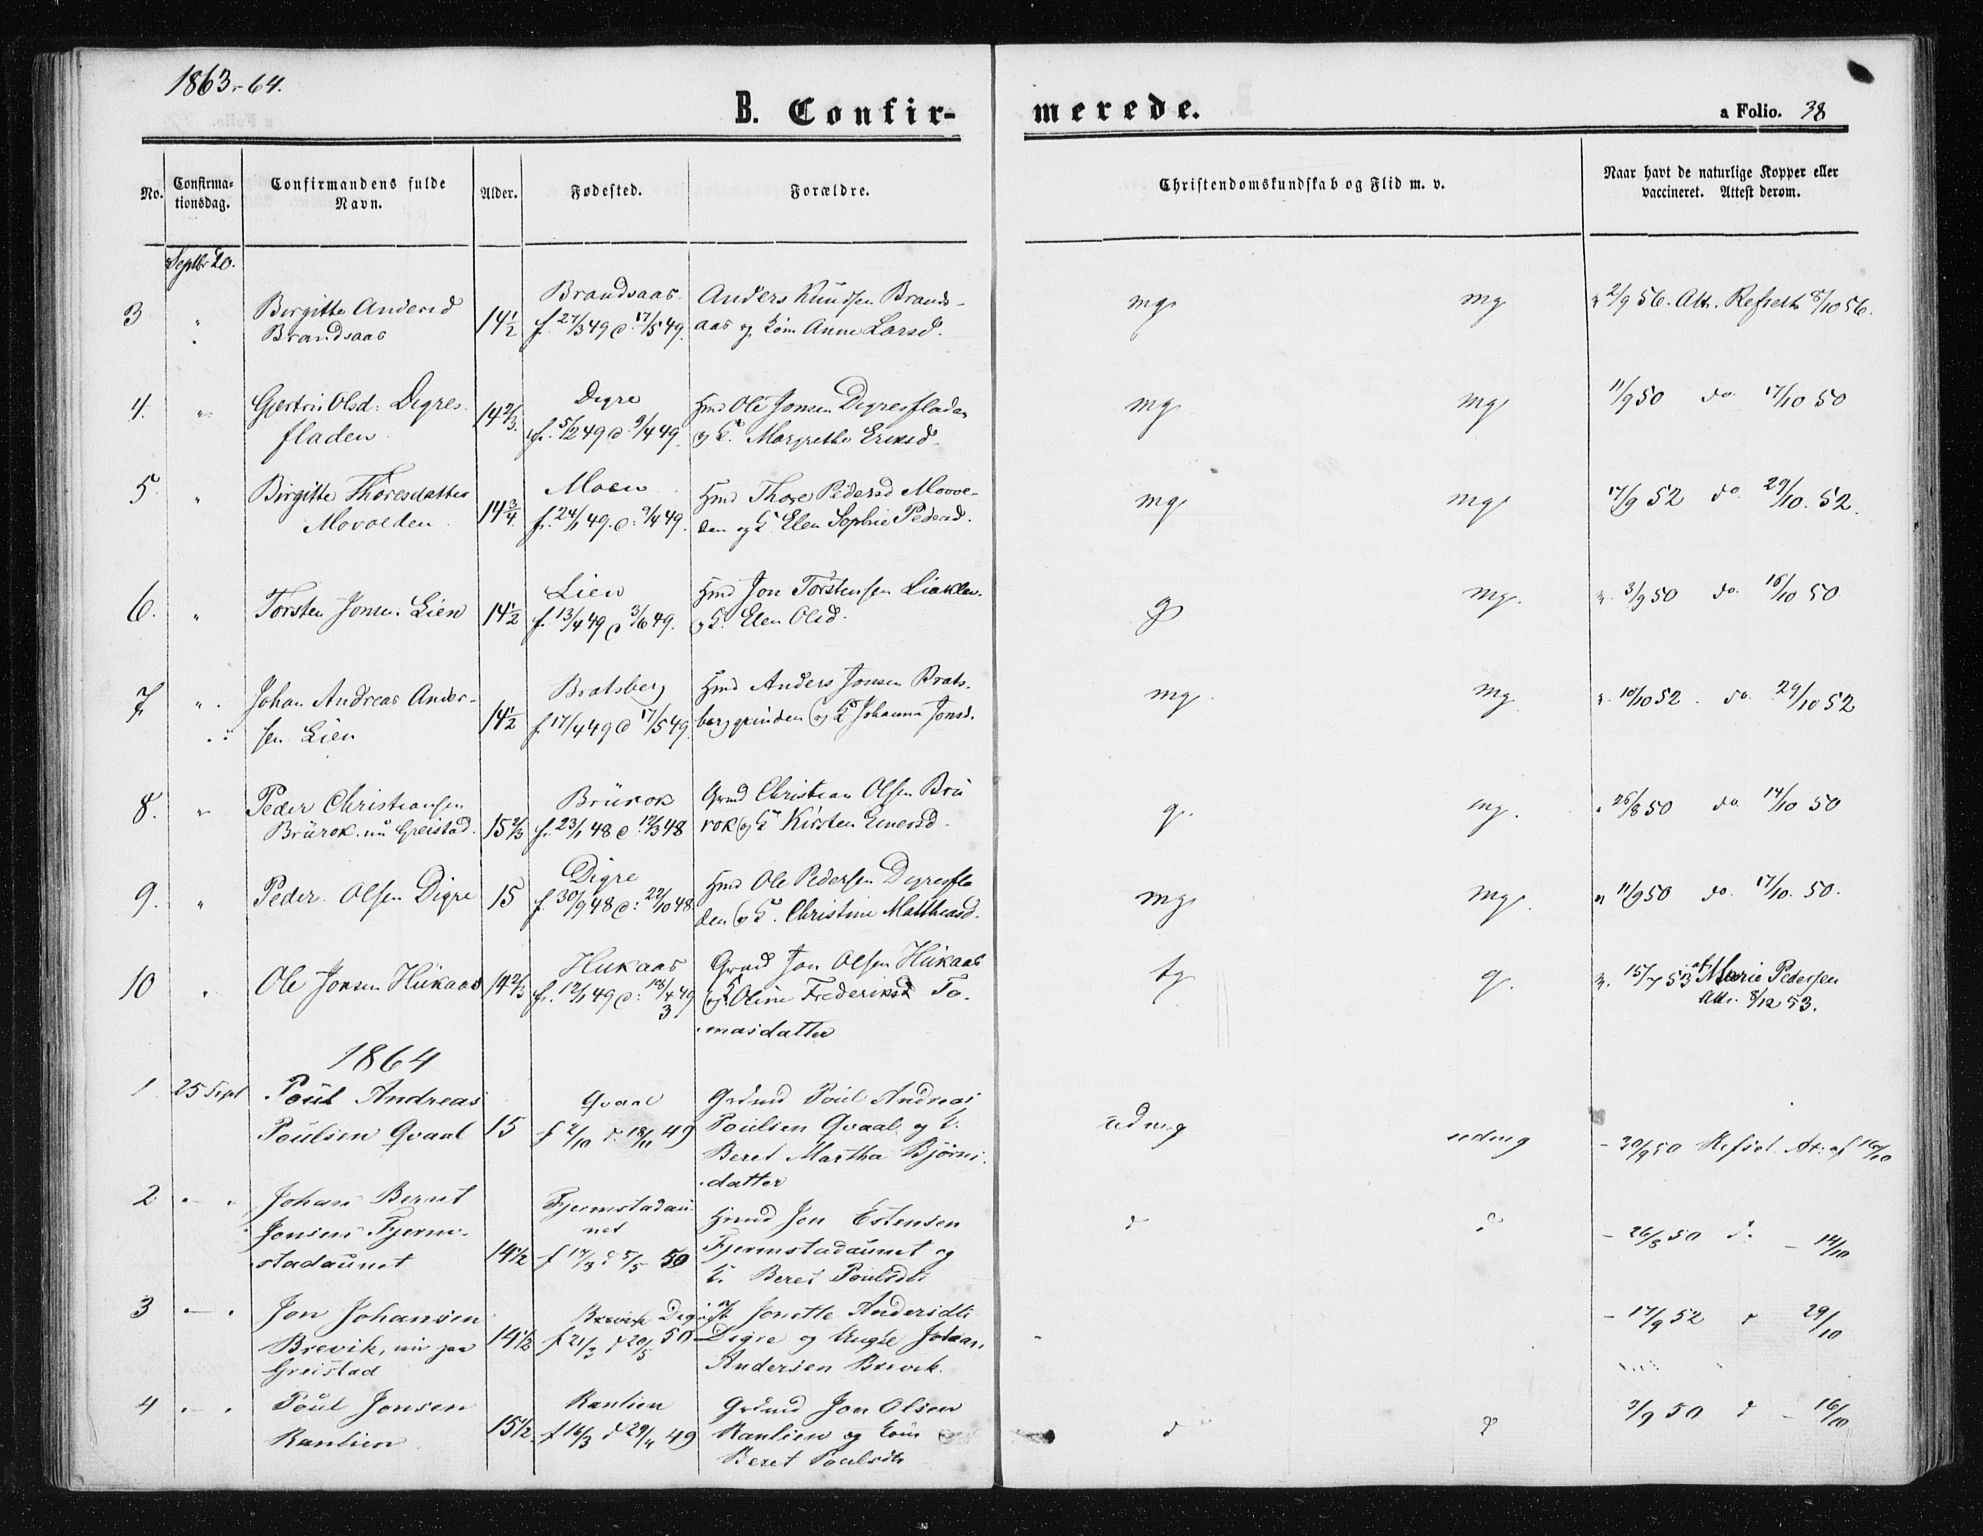 1863-64.
B. Confir-
merede.
a Folio. 38
No.
Confirma-
tionsdag.
Confirmandens fulde
Navn.
Alder.
Fødested.
Forældre.
Christendomskundskab og Flid m. v.
Naar havt de naturlige Kopper eller
vaccineret. Attest derom.
Septbr 20.
3 " Birgitte Andersd 14 1/2 Brandsaas Anders Knudsen Brands- mg mg 2/9 56. Att. Refseth 8/10 56.
Brandsaas f. 27/3 49 d. 17/5 49. aas og Kone Anne Larsd.
4. " Gjertru Olsd. Digres- 14 2/3. Digre Hmd Ole Jonsen Digresfladen mg mg 11/9 50 do. 17/10 50
fladen f. 5/2 49 d. 9/4 49. og K. Margrethe Eriksd.
5. " Birgitte Thoresdatter 14 3/4. Moen Hmd Thore Pedersd Movol- mg mg 17/9 52 do. 29/10. 52.
Movolden f. 24/1 49. d. 9/4 49. den og K. Elen Sophie Pedersd.
6. " Torsten Jonsen Lien 14 1/2 Lien Hmd Jon Torstensen Liaklev. g mg. 3/9 50 do. 16/10 50
f. 13/4 49 d 3/6 49. og K. Elen Olsd.
7. " Johan Andreas Ander- 14 1/2 Bratsberg Hmd Anders Jonsen Brats- mg mg 10/10 52. do. 29/10 52
sen Lien f. 17/4 49 d 17/5 49. berggrinden og K Johanna Jonsd.
8. " Peder Christiansen 15 2/3 Brürok Grmd Christian Olsen Brü- g. mg. 26/8 50 do 14/10 50
Brürok. nu Greistad. f. 23/1 48 d. 12/3 48 rok og K Kirsten Einersd.
9. " Peder Olsen Digre 15 Digre Hmd Ole Pedersen Digresfla- mg mg. 11/9 50 do. 17/10. 50.
f. 30/9 48 d: 22/10 48. den og K. Christine Matthiasd.
10 " Ole Jonsen Hükaas 14 2/3 Hükaas Grmd Jon Olsen Hükaas tg g. 15/7 53 af Marie Pedersen
f. 12/1 49 d: og K. Oline Frederikke To- Att. 8/12 53.
masdatter
1864
1 25 Sept Poül Andreas 15 Qvaal Grdmd Poül Andreas udmg udmg - 30/9 50 Refset. At: af 16/10
Poülsen Qvaal f 2/10 d. 18/11 49 Poülsen Qvaal og K.
Beret Martha Bjørns-
datter
2 - " Johan Bernt Fjermstadaü- Hmd Jon Estensen d d - 26/8 50 d: - 14/10
Jonsen Fjerm- net Fjermstadaünet og
stadaünet 14 1/2 f 17/3 d 5/5 50 K. Beret Poülsdt
3 - " Jon Johansen 14 1/2 Brevik Digre Jonette Andersdt - 17/9 52 d 29/10
Brevik, nu paa f 21/3 d 20/5 50 Digre og Ungk Johan
Greistad Andersen Brevik.
4 - " Poül Jonsen 15 1/2 Ranlien Grdmd Jon Olsen d d 3/9 50 d - 16/10
Ranlien f 16/3 d 29/4 49 Ranlien og Kone
Beret Poulsdt